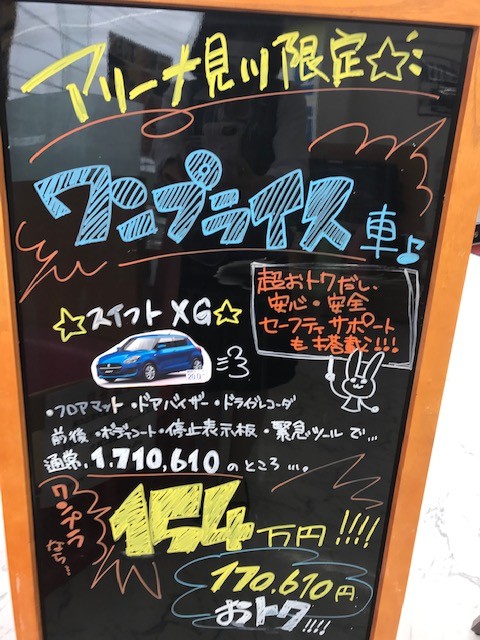 アリーナ見川限定☆
ワンプライス車♪
超おトクだし
安心・安全
セーフティサポート
も搭載!!!
☆スイフトXG☆
・フロアマット・ドアバイザー・ドライブレコーダ
前後・ボディコート・停止表示板・緊急ツールで…
通常、1,710,610のところ…。
ワンプラなら…
154万円!!!!
170,610円
おトク!!!!